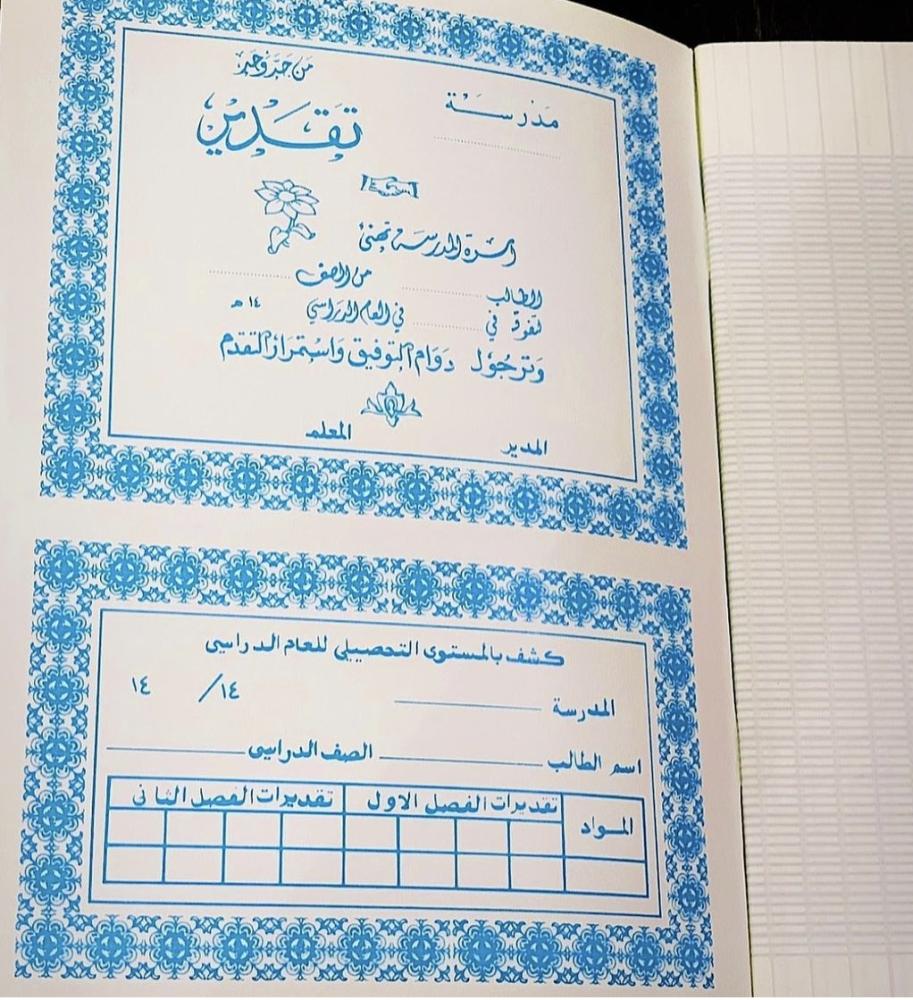 من جد وجد
مدرسة
تقدير
أسرة المدرسة تهنئ
الطالب من الصف
لتفوقه في في العام الدراسي ١٤ هـ
وترجو له دوام التوفيق واستمرار التقدم
المدير المعلم
كشف بالمستوى التحصيلي للعام الدراسي
١٤ / ١٤
المدرسة
اسم الطالب الصف الدراسى
المواد تقديرات الفصل الاول تقديرات الفصل الثانى